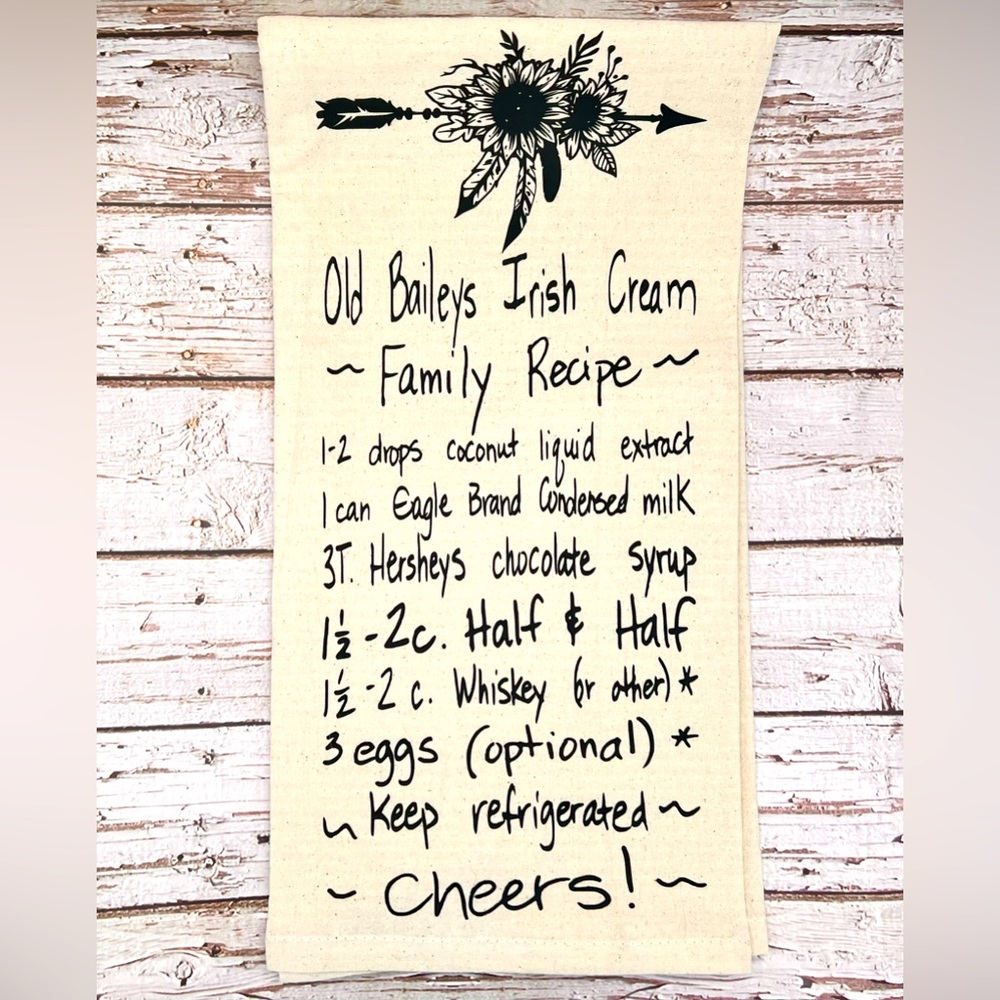 Old Baileys Irish Cream
~ Family Recipe ~
1-2 drops coconut liquid extract
1 can Eagle Brand Condensed milk
3T. Hersheys chocolate syrup
1½ - 2c. Half & Half
1½ - 2 c. Whiskey (or other) *
3 eggs (optional) *
~ Keep refrigerated ~
~ Cheers! ~